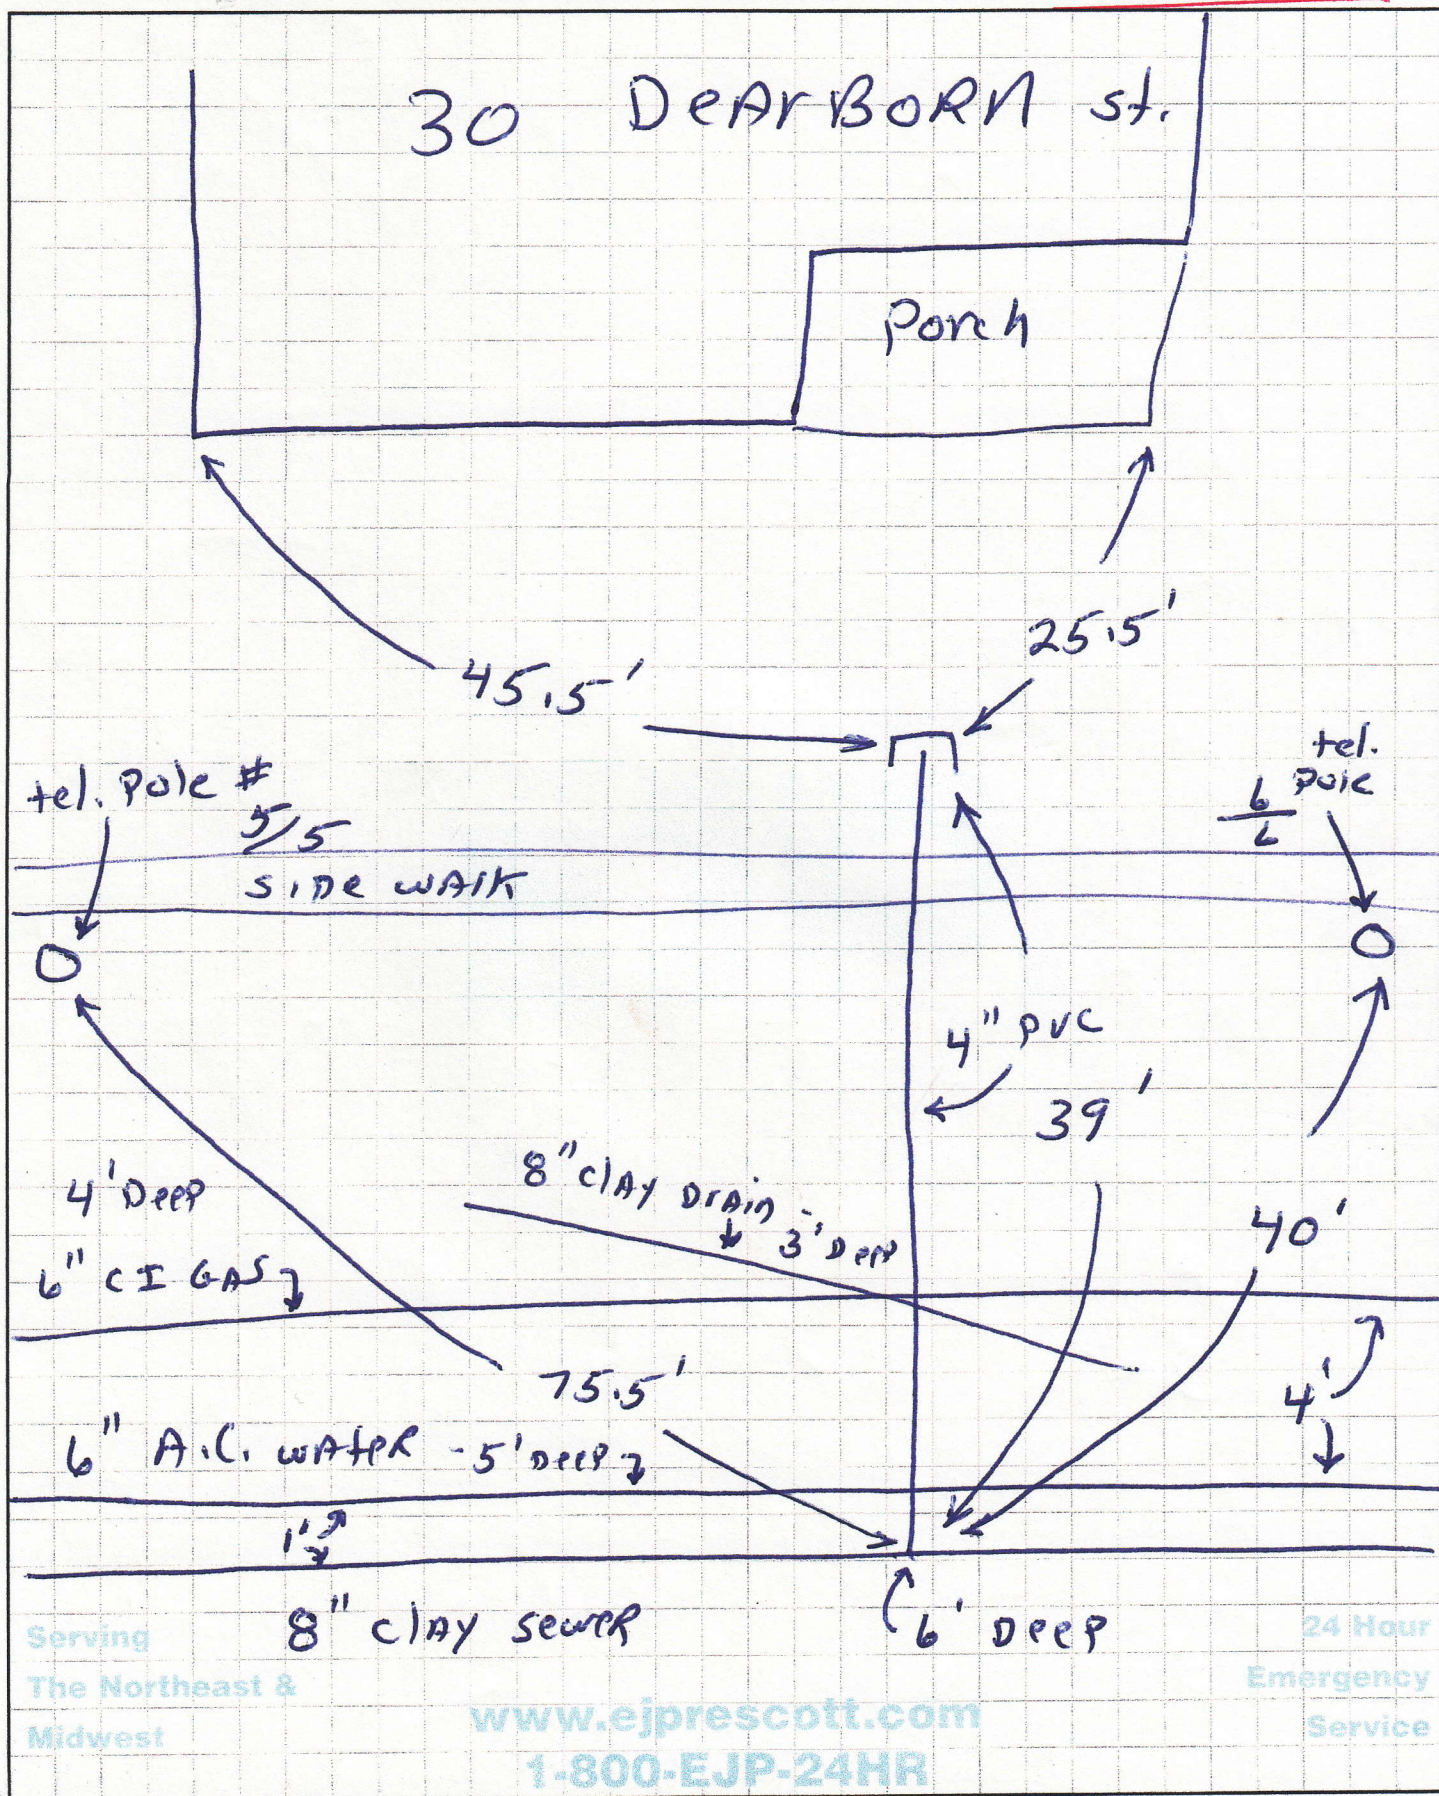 30 DeArBORN st.
Porch
25.5'
45.5'
tel. Pole #
5/5
tel.
Pole
6
6
SIDe WAlK
4" PVC
39'
8" clAy DrAin - 3' Deep
4' Deep
6" CI GAS
40'
75.5'
4'
6" A.C. wAteR - 5' Deep
1'
8" clAy seweR
6' Deep
Serving
The Northeast &
Midwest
www.ejprescott.com
1-800-EJP-24HR
24 Hour
Emergency
Service